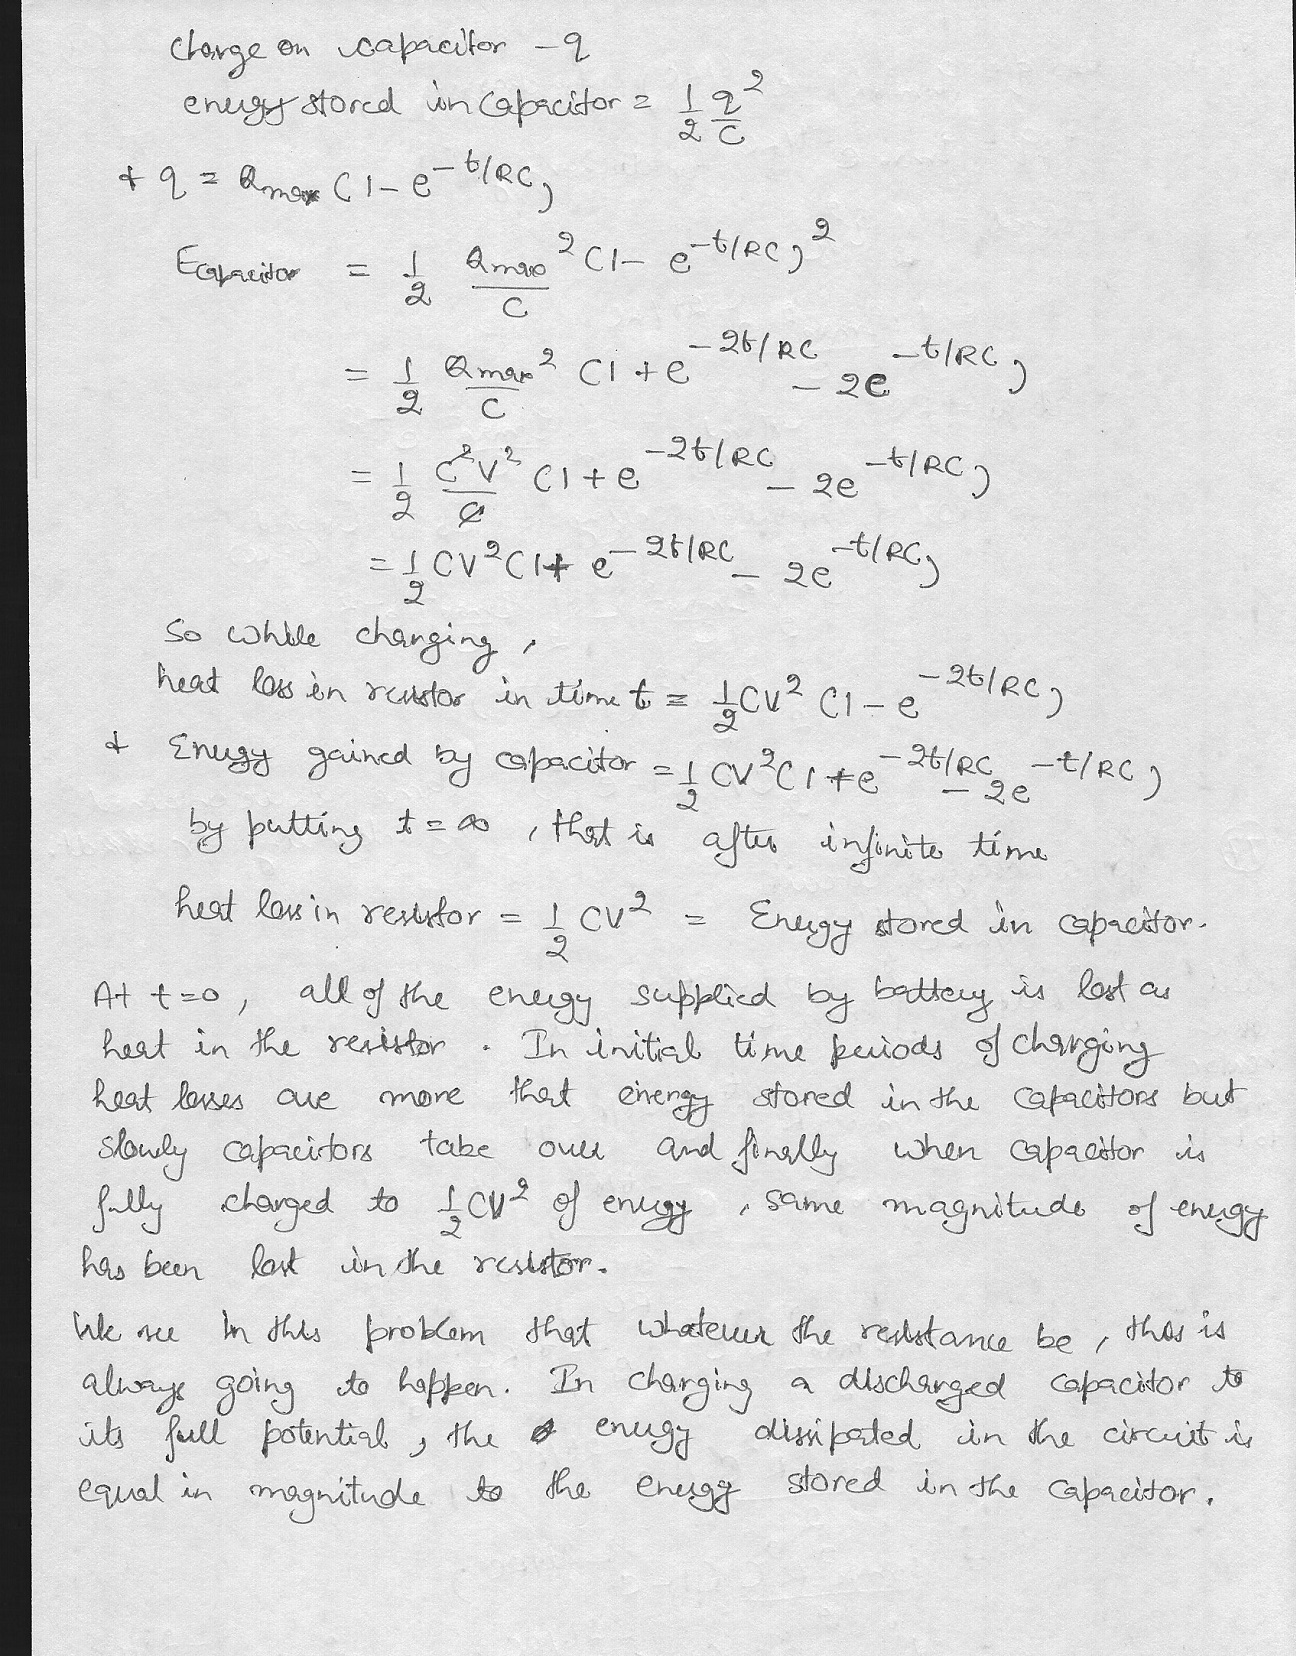 charge on capacitor - q
energy stored in capacitor = 1/2 q²/C
& q = Qmax (1 - e^-t/RC)
Ecapacitor = 1/2 Qmax²/C (1 - e^-t/RC)²
= 1/2 Qmax²/C (1 + e^-2t/RC - 2e^-t/RC)
= 1/2 C²V²/C (1 + e^-2t/RC - 2e^-t/RC)
= 1/2 CV² (1 + e^-2t/RC - 2e^-t/RC)
So while charging,
heat loss in resistor in time t = 1/2 CV² (1 - e^-2t/RC)
& Energy gained by capacitor = 1/2 CV² (1 + e^-2t/RC - 2e^-t/RC)
by putting t = ∞, that is after infinite time
heat loss in resistor = 1/2 CV² = Energy stored in capacitor.
At t=0, all of the energy supplied by battery is lost as
heat in the resistor. In initial time periods of charging
heat losses are more that energy stored in the capacitors but
slowly capacitors take over and finally when capacitor is
fully charged to 1/2 CV² of energy, same magnitude of energy
has been lost in the resistor.
We see in this problem that whatever the resistance be, this is
always going to happen. In charging a discharged capacitor to
its full potential, the energy dissipated in the circuit is
equal in magnitude to the energy stored in the capacitor.